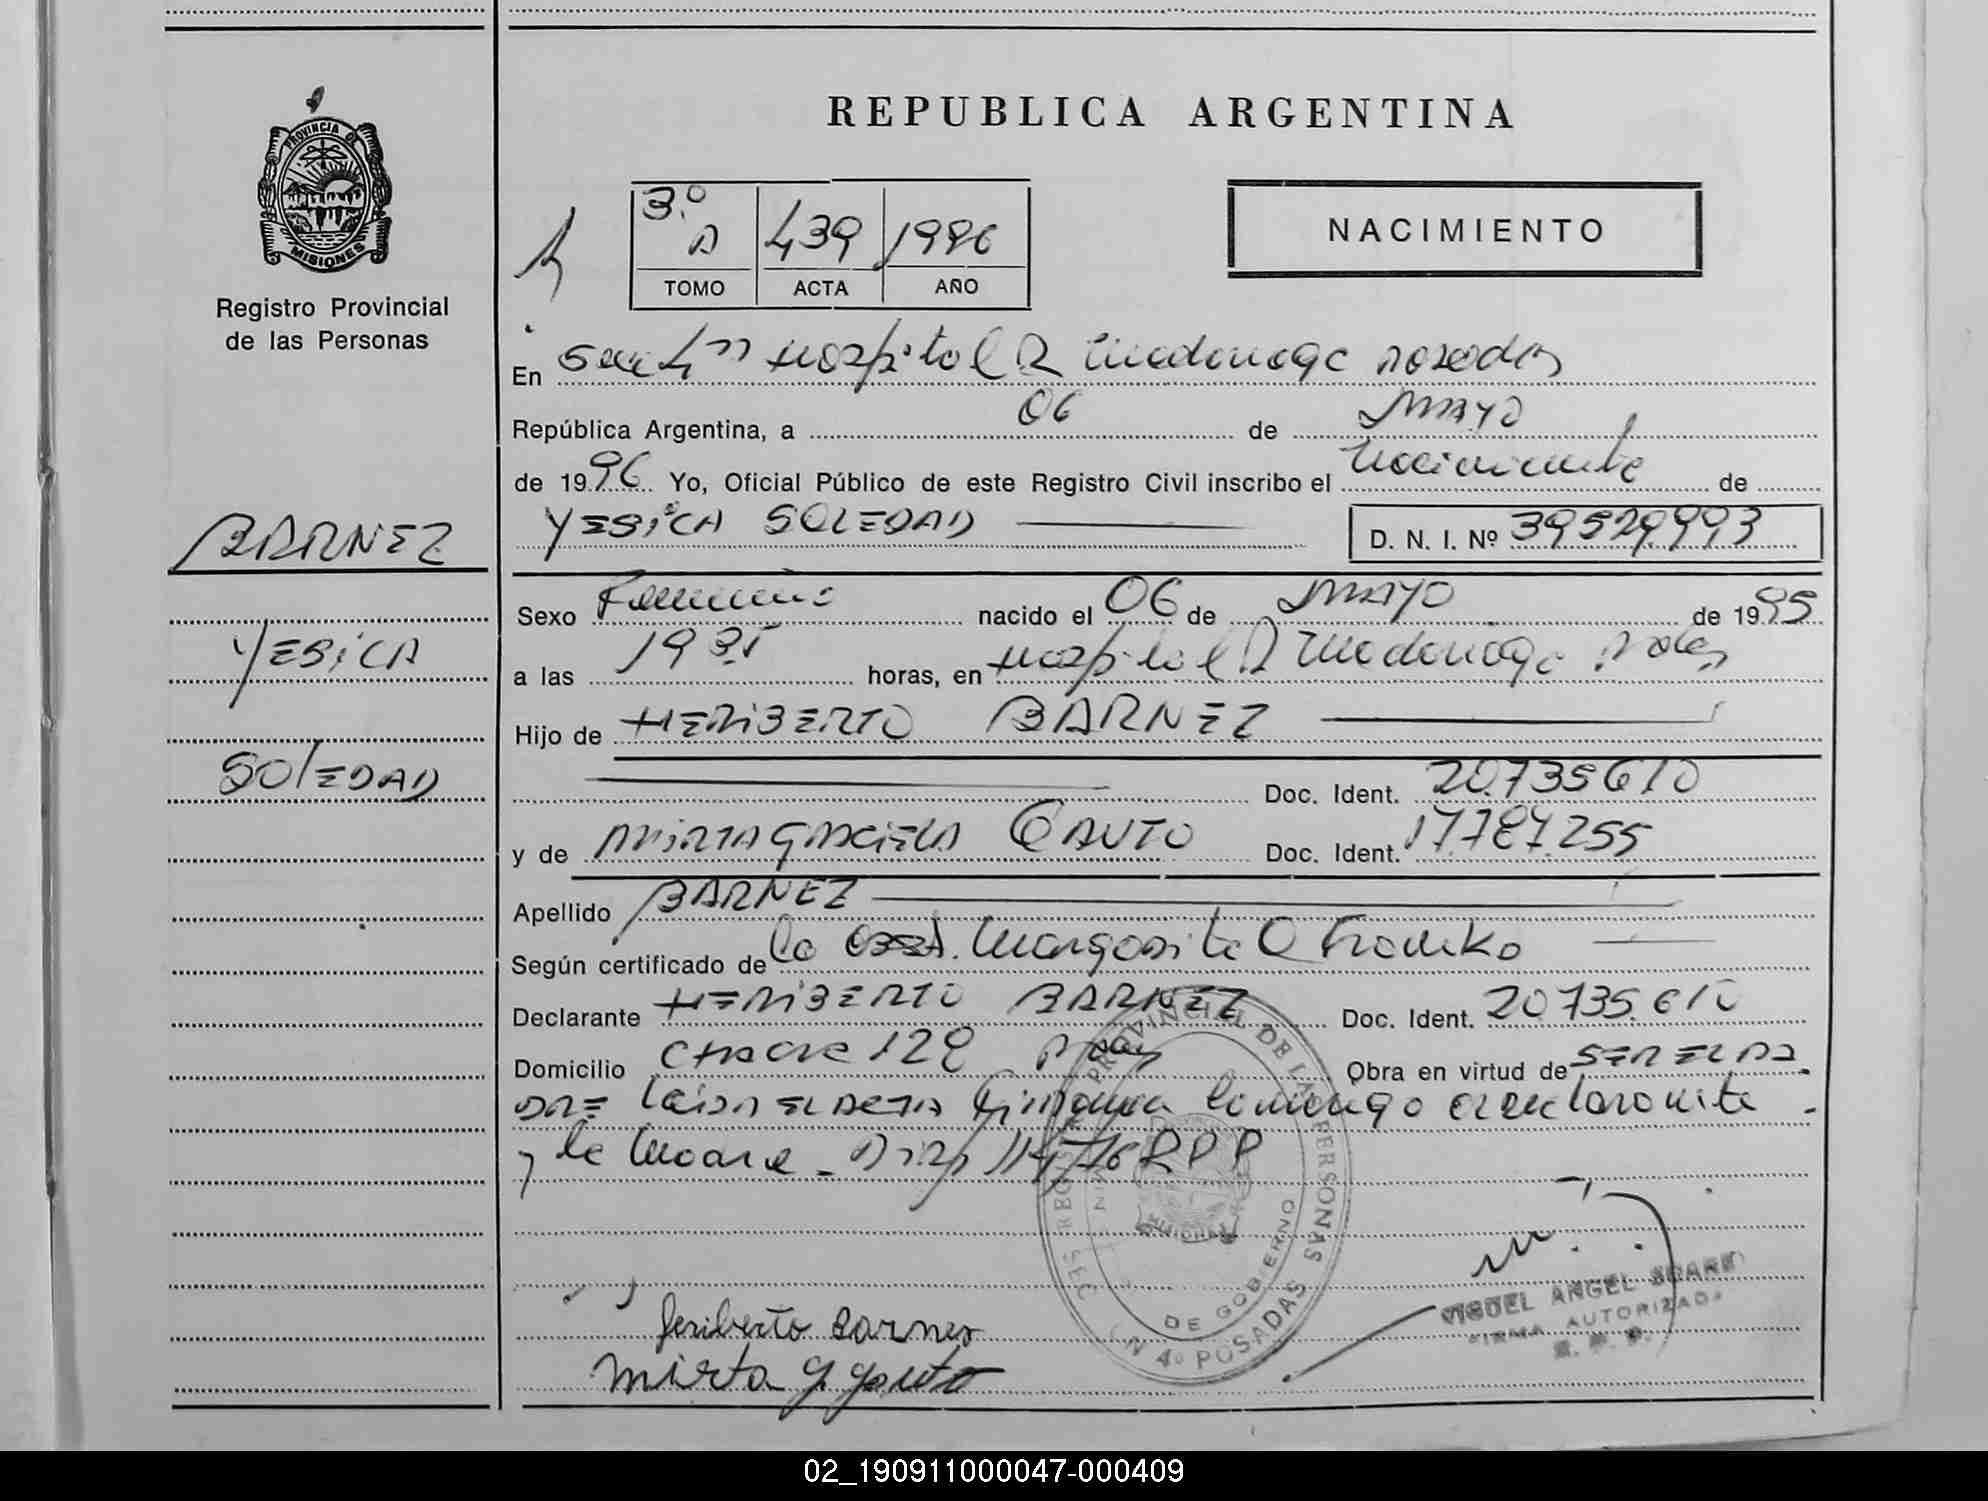 REPUBLICA ARGENTINA
PROVINCIA DE
MISIONES
Registro Provincial
de las Personas
3.º A 439 1996
TOMO ACTA AÑO
NACIMIENTO
En Hospital R Madariaga Posadas
República Argentina, a 06 de MAYO
de 1996 Yo, Oficial Público de este Registro Civil inscribo el nacimiento de
YESiCA SOLEDAD D. N. I. Nº 39529993
BARNEZ
YESiCA
SOLEDAD
Sexo Femenino nacido el 06 de MAYO de 1995
a las 19 horas, en Hospital R Madariaga Pdas
Hijo de HERiBERTO BARNEZ
Doc. Ident. 20.735610
y de MiRTA GRACiELA GAUTO Doc. Ident. 17.787.255
Apellido BARNEZ
Según certificado de la Obst. Margarita Q Franko
Declarante HERiBERTO BARNEZ Doc. Ident. 20735.610
Domicilio CHACRA 129 Pdas Obra en virtud de SER EL PA
DRE conmigo el declarante
y la Madre - Disp 114/76 RPP
REGISTRO PROVINCIAL DE LAS PERSONAS
MISIONES
DE GOBIERNO
SEC N 4º POSADAS
Heriberto Barnez
Mirta G. Gauto
MIGUEL ANGEL SOAREZ
FIRMA AUTORIZADA
R. P. P.
02_190911000047-000409